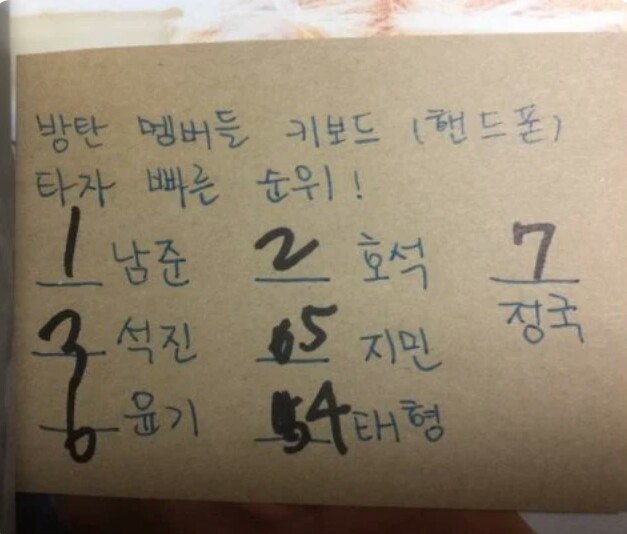 방탄 멤버들 키보드 (핸드폰)
타자 빠른 순위!
1 남준 2 호석 7 정국
3 석진 5 지민
6 윤기 4 태형